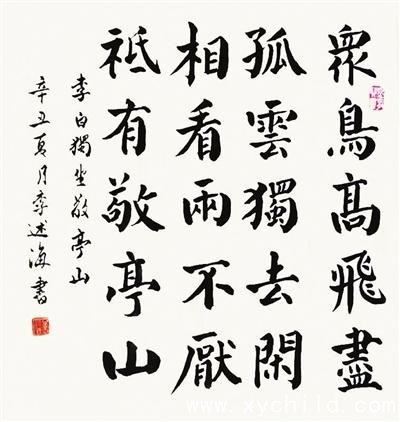 眾鳥高飛盡
孤雲獨去閑
相看兩不厭
祗有敬亭山
李白獨坐敬亭山
辛丑夏月李述海書
www.xychild.com